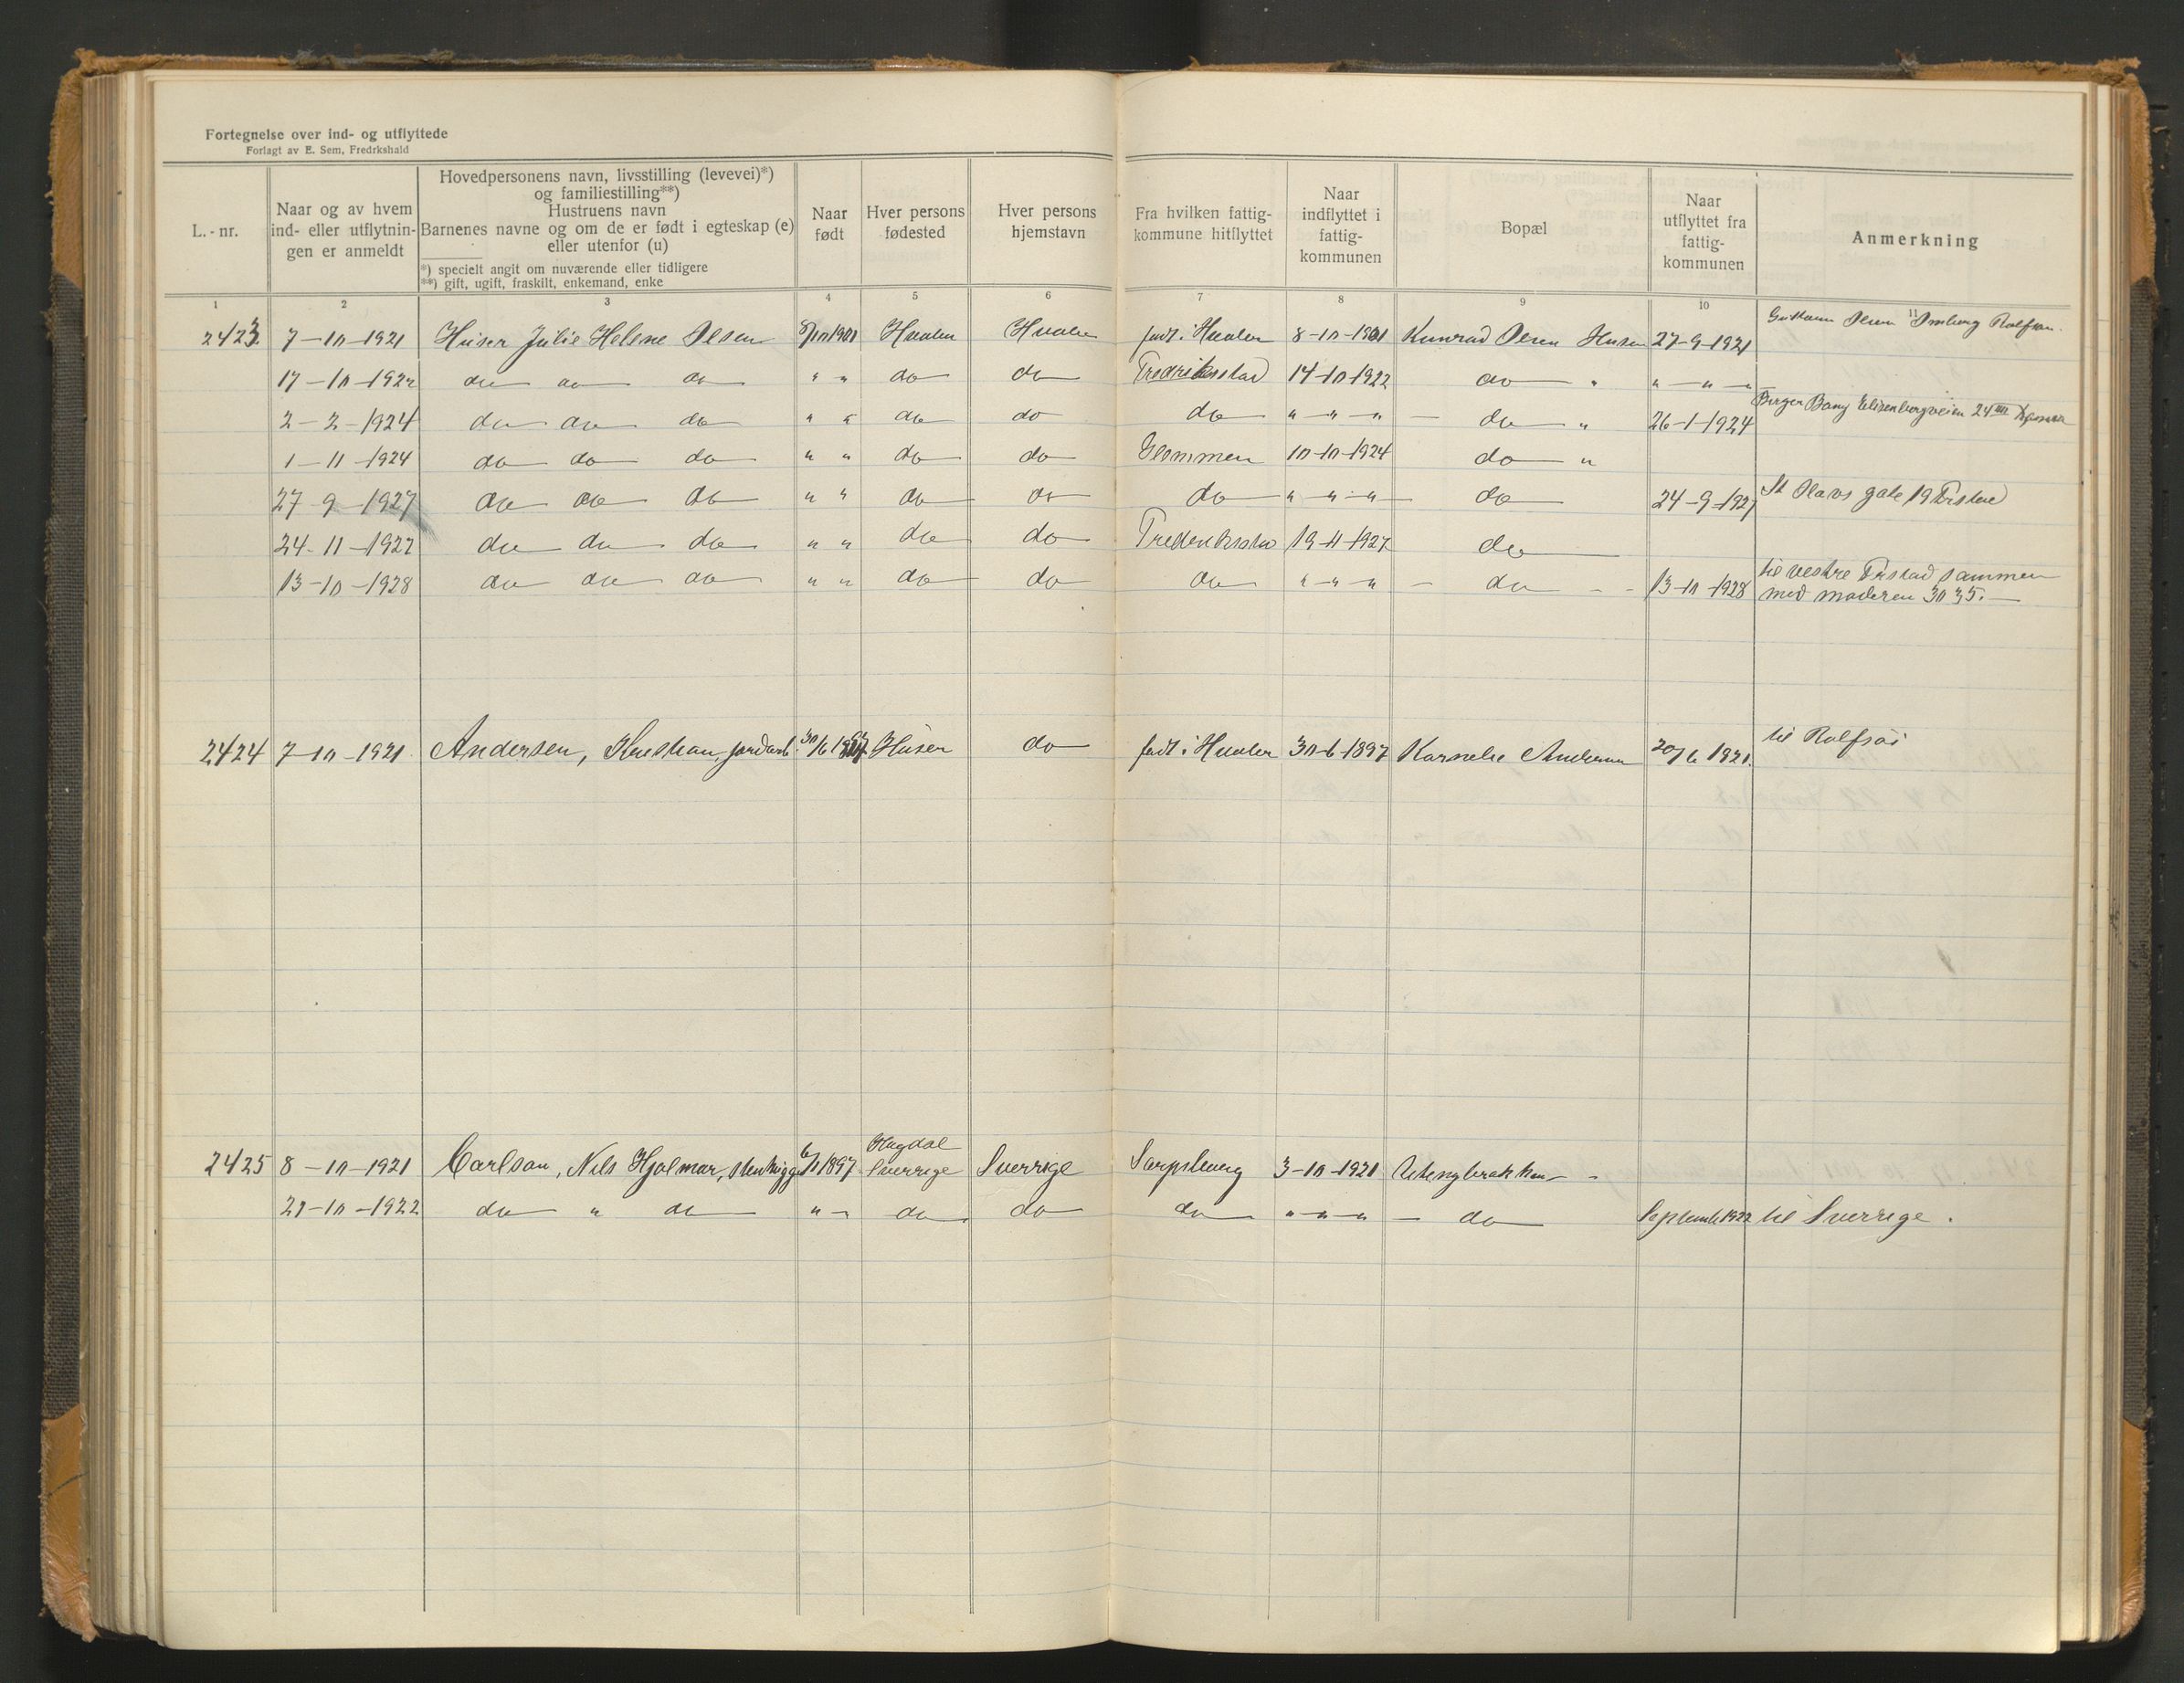 Fortegnelse over ind- og utflyttede
Forlagt av E. Sem, Fredrkshald
L.-nr.
Naar og av hvem ind- eller utflytnin- gen er anmeldt
Hovedpersonens navn, livsstilling (levevei)*)
og familiestilling**)
Hustruens navn
Barnenes navne og om de er født i egteskap (e)
eller utenfor (u)
*) specielt angit om nuværende eller tidligere
**) gift, ugift, fraskilt, enkemand, enke
Naar født
Hver persons fødested
Hver persons hjemstavn
Fra hvilken fattig- kommune hitflyttet
Naar indflyttet i fattig- kommunen
Bopæl
Naar utflyttet fra fattig- kommunen
Anmerkning
1 2 3 4 5 6 7 8 9 10 11
2423 7-10-1921 Huser Julie Helene Olsen 8/10 1901 Hvaler Hvaler født i Hvaler 8-10-1901 Kunrad Olsen Huser 27-9-1921 Olsen Rolfsøen
17-10-1922 do do do " " do do Fredrikstad 14-10-1922 do " " - " - "
2-2-1924 do do do " " do do do " - " - " - do " 26-1-1924 Birger Bang Elisenbergveien 24 III
1-11-1924 do do do " " do do Glemmen 10-10-1924 do "
27-9-1927 do do do " " do do do " - " - " - do 24-9-1927 St Olavs gate 19 Frstad
24-11-1927 do do do " " do do Fredrikstad 19-11-1927 do
13-10-1928 do do do " " do do do " - " - " - do - - 13-10-1928 til vestre Frstad sammen
med moderen 3035.-
2424 7-10-1921 Andersen, Kristian, jordarb. 30/6 1897 Huser do født i Hvaler 30-6-1897 Karnelie Andersen 20/6 1921. til Rolfsøi
2425 8-10-1921 Carlson, Nils Hjalmar, stenhugger 6/11897 Hogdal
Sverrige Sverrige Sarpsborg 3-10-1921 -
21-10-1922 do " do " - do do do " - " - " - do September 1922 til Sverrige.